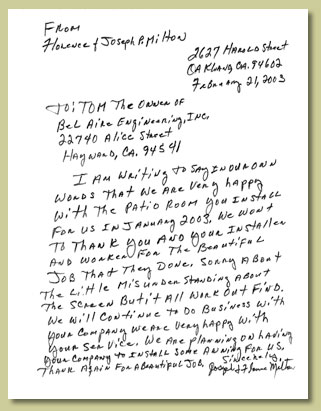 FROM
Florence & Joseph P. Milton
2627 Harold Street
OAKland, CA. 94602
February 21, 2003
TO: TOM The OWNER OF
Bel Aire Engineering, Inc.
22740 Alice Street
HAYWARD, CA. 94541
I AM WRiting TO SAY IN OUR OWN
WORDS THAT WE ARE VERY HAPPY
WITH THE PATIO ROOM YOU INSTALL
FOR US IN JANUARY 2003. WE WONT
TO THANK YOU AND YOUR INSTALLER
AND WORKER FOR THE BEAUTIFUL
JOB THAT THEY DONE. SORRY ABOUT
THE LITTLE MISUNDERSTANDING ABOUT
THE SCREEN BUT IT ALL WORK OUT FIND.
WE WILL CONTINUE TO DO BUSINESS WITH
YOUR COMPANY WE ARE VERY HAPPY WITH
YOUR SERVICE. WE ARE PLANNING ON HAVING
YOUR COMPANY TO INSTALL SOME AWNING FOR US.
THANK AGAIN FOR A BEAUTIFUL JOB. Sincerely,
Joseph & Florence Milton